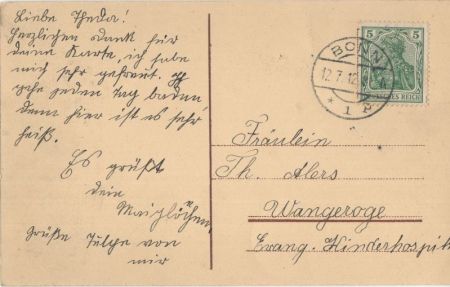 Liebe Theda!
Herzlichen Dank für
deine Karte, ich habe
mich sehr gefreut. Ich
gehe jeden Tag baden
denn hier ist es sehr
heiß.
Es grüßt
dein
Maiglöckchen
Grüße von
mir
5 5
BONN
12.7.12
* 1 P
REICH
Fräulein
Th. Alers
Wangeroge
Evang. Kinderhospi